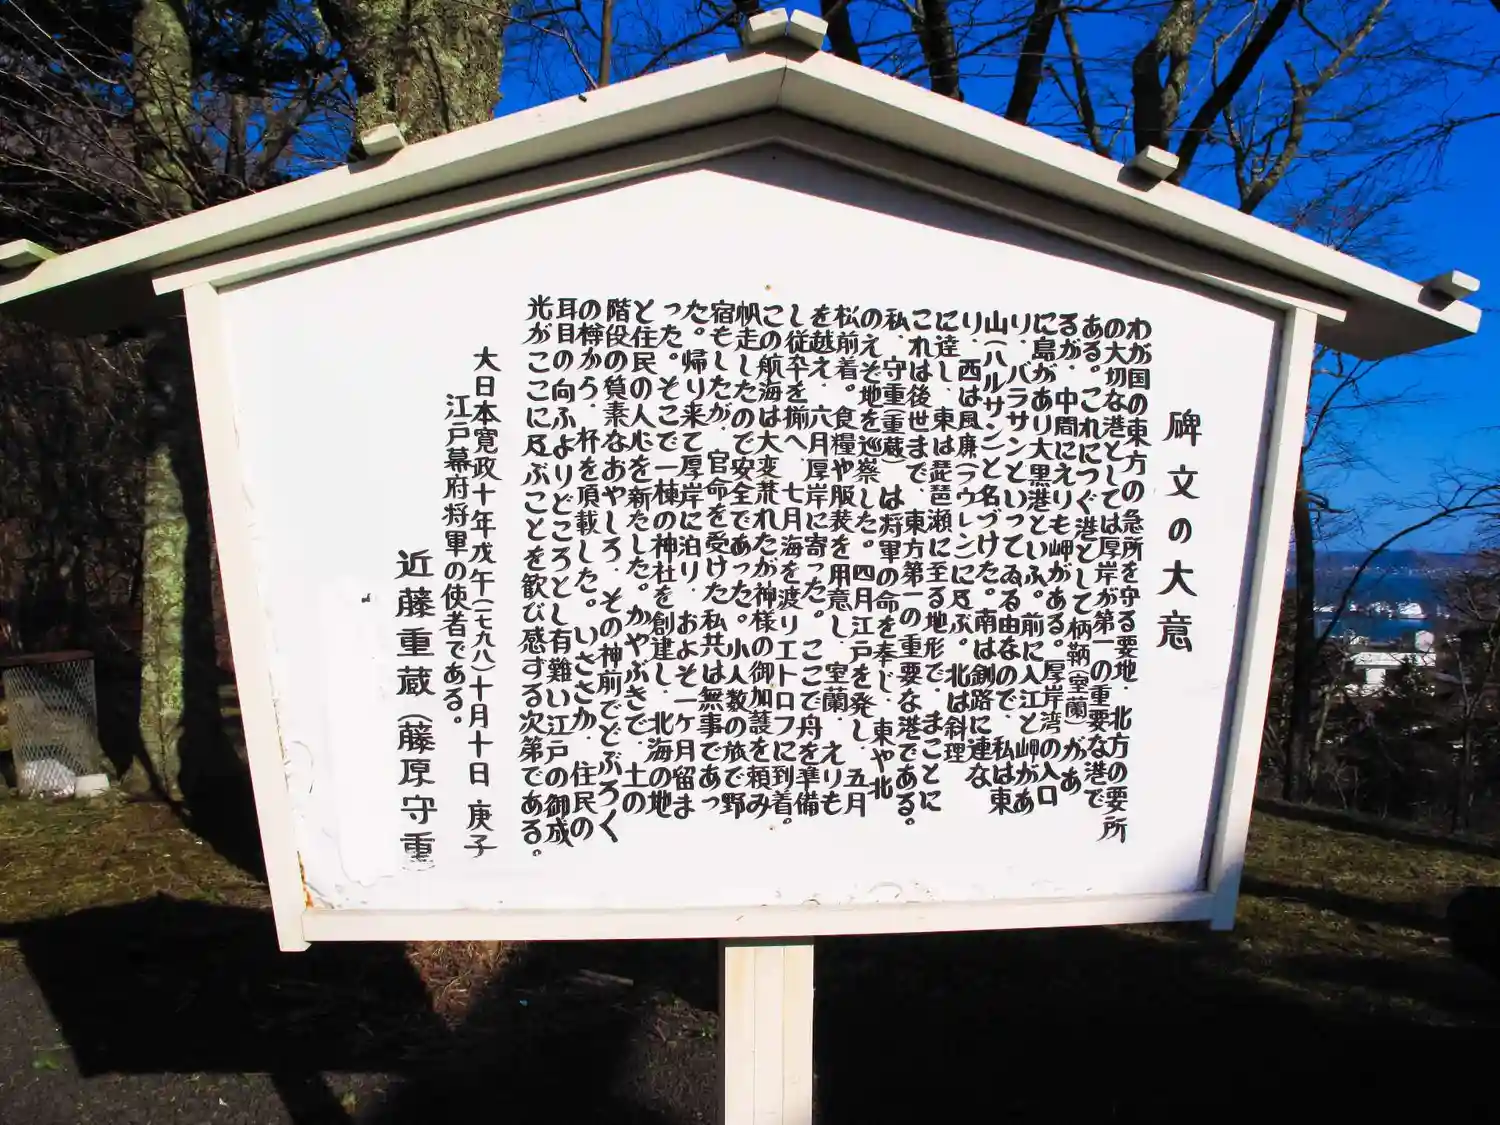 碑文の大意
わが国の東方の急所を守る要地・北方の要所
の大切な港としては厚岸が第一の重要な港で
ある。これにつぐ港として柄鞆(室蘭)があ
るが、中間にえりも岬がある。厚岸湾の入口
に島があり大黒港といふ。前に入江と岬があ
り、バラサンといってゐる由なので、私は東
山(ハルサン)と名づけた。南は釧路に連な
り、西は風廉(ラウレン)に及ぶ。北は斜理
に達し、東は琵琶瀬に至る地形で、まことに
これは後世まで、東方第一の重要な港である。
私、守重(重蔵)は将軍の命を奉じ、東や北
のえぞ地を巡察した。四月江戸を発し、五月
松前着。食糧や服装を用意し、室蘭、えりも
を越え、六月厚岸に寄った。ここで舟を準備
し従卒を揃へ、七月海を渡りエトロフに到着。
この航海は大変荒れたが神様の御加護を頼み
帆走したので安全であった。小人数の旅で野
宿もしたが、官命を受けた私共は無事であっ
た。帰り来て厚岸に泊り、およそ一ヶ月留ま
った。そこで一棟の神社を創建し、北海の地
と住民の人心を新たした。かやぶきで、土の
階段の質素なおやしろ、その神前でどぶろく
の樽から、杯を頂載した。いささか、住民の
耳目の向ふよりどころとし有難い江戸の御成
光がここに及ぶことを歓び感ずる次第である。
大日本寛政十年戊午(一七九八)十月十日 庚子
江戸幕府将軍の使者である。
近藤重蔵(藤原守重)